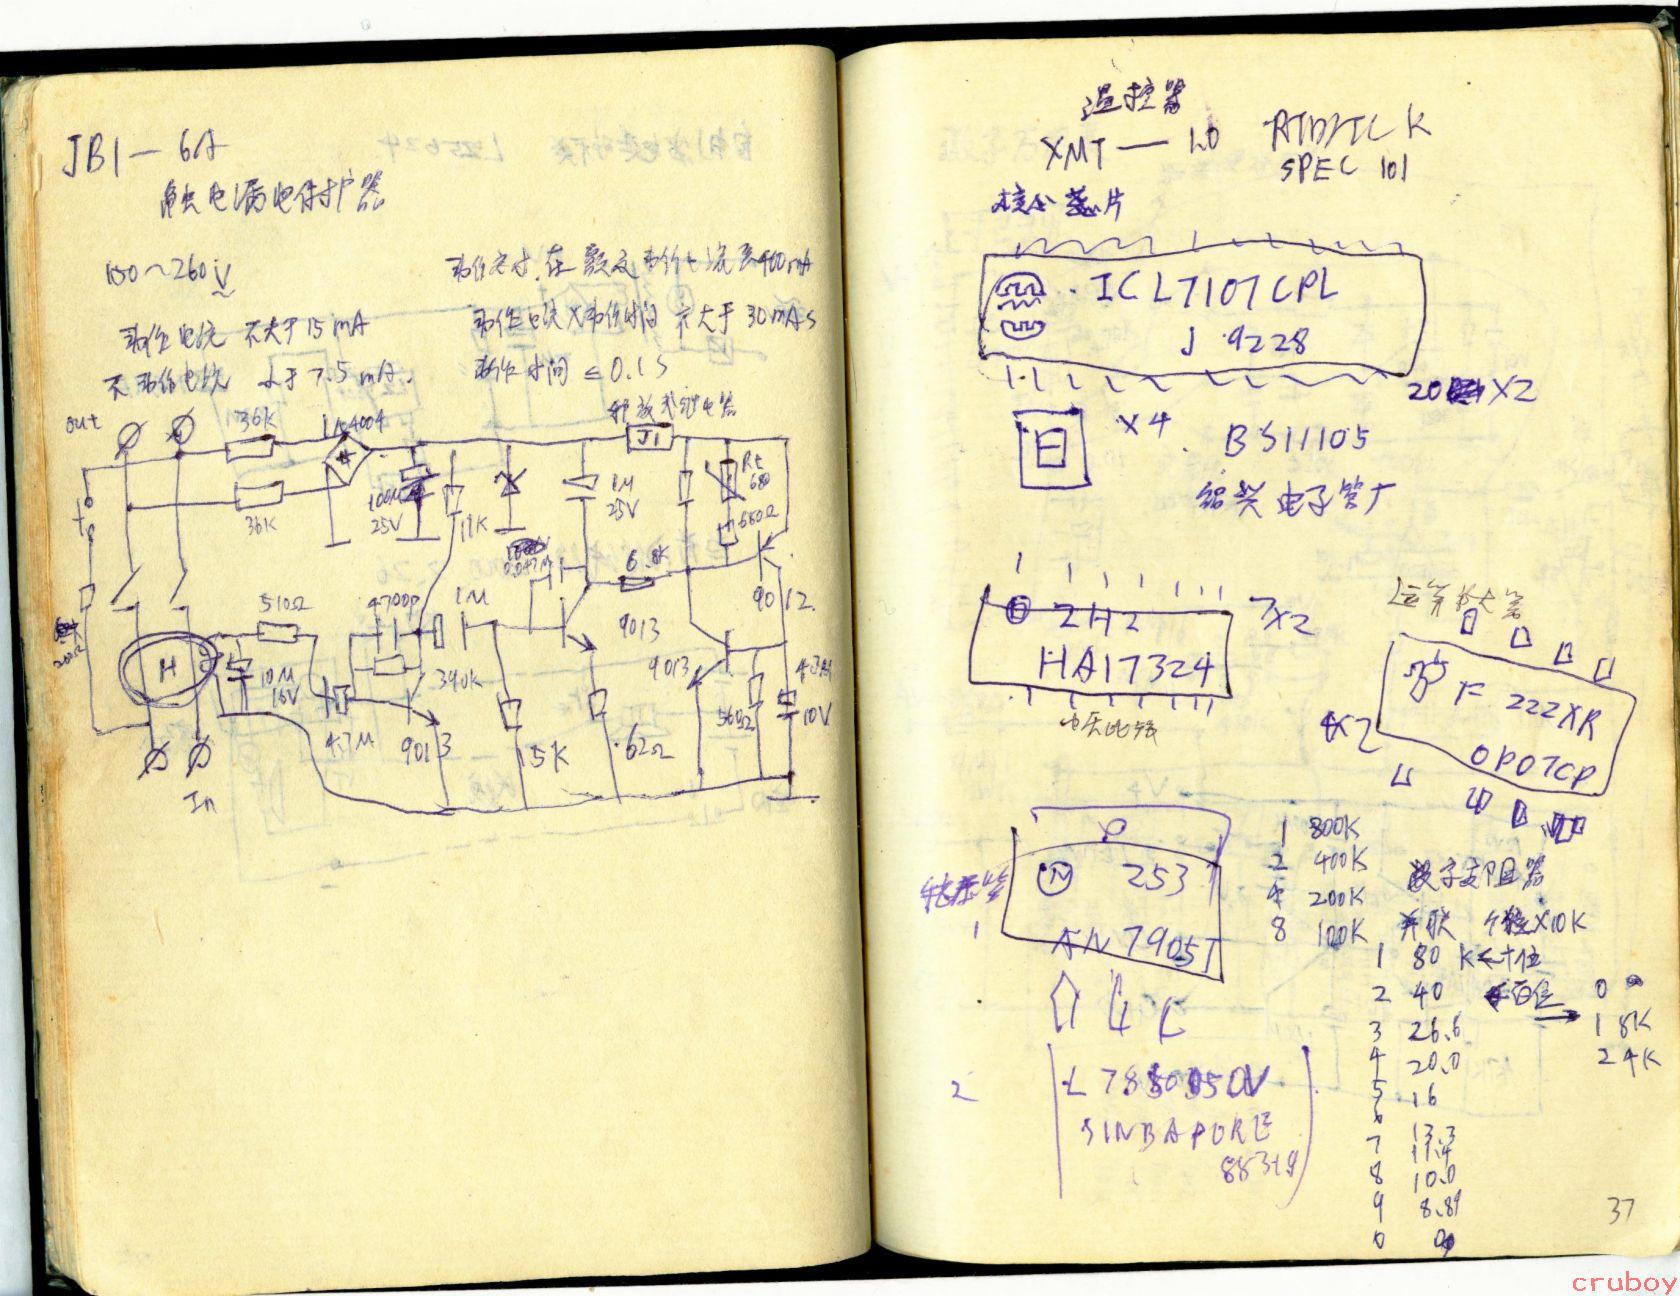 JB1—6A
触电漏电保护器
150～260V
动作电流 不大于15mA
不动作电流 小于7.5mA.
动作时,在额定动作电流至400mA
动作电流X动作时间 不大于30mAs
动作时间 ≤0.1S
释放式继电器
out
36K
1N4004
J1
Rt
680
680Ω
36K
100M
25V
11K
1M
25V
0.047M
6.8K
9012
510Ω
4700P
1M
9013
9013
4.7M
10V
H
10M
16V
390K
560Ω
4.7M
9013
15K
62Ω
In
温控器
XMT—10
RTD/TC K
SPEC 101
核心芯片
ICL7107CPL
J 9228
20 X2
日
X4
BS11105
绍兴电子管厂
2H2
HA17324
7X2
电压比较
运算放大器
F 222XR
OP07CP
4X2
稳压管
1
N 253
AN7905T
2
L7805
SINBAPORE
88319
1 800K
2 400K
4 200K
8 100K
数字变阻器
并联 个位X10K
1 80 K←十位
2 40 ←百位
3 26.6
4 20.0
5 16
6 13.3
7 11.4
8 10.0
9 8.89
0
0 ∞
1 8K
2 4K
37
cruboy